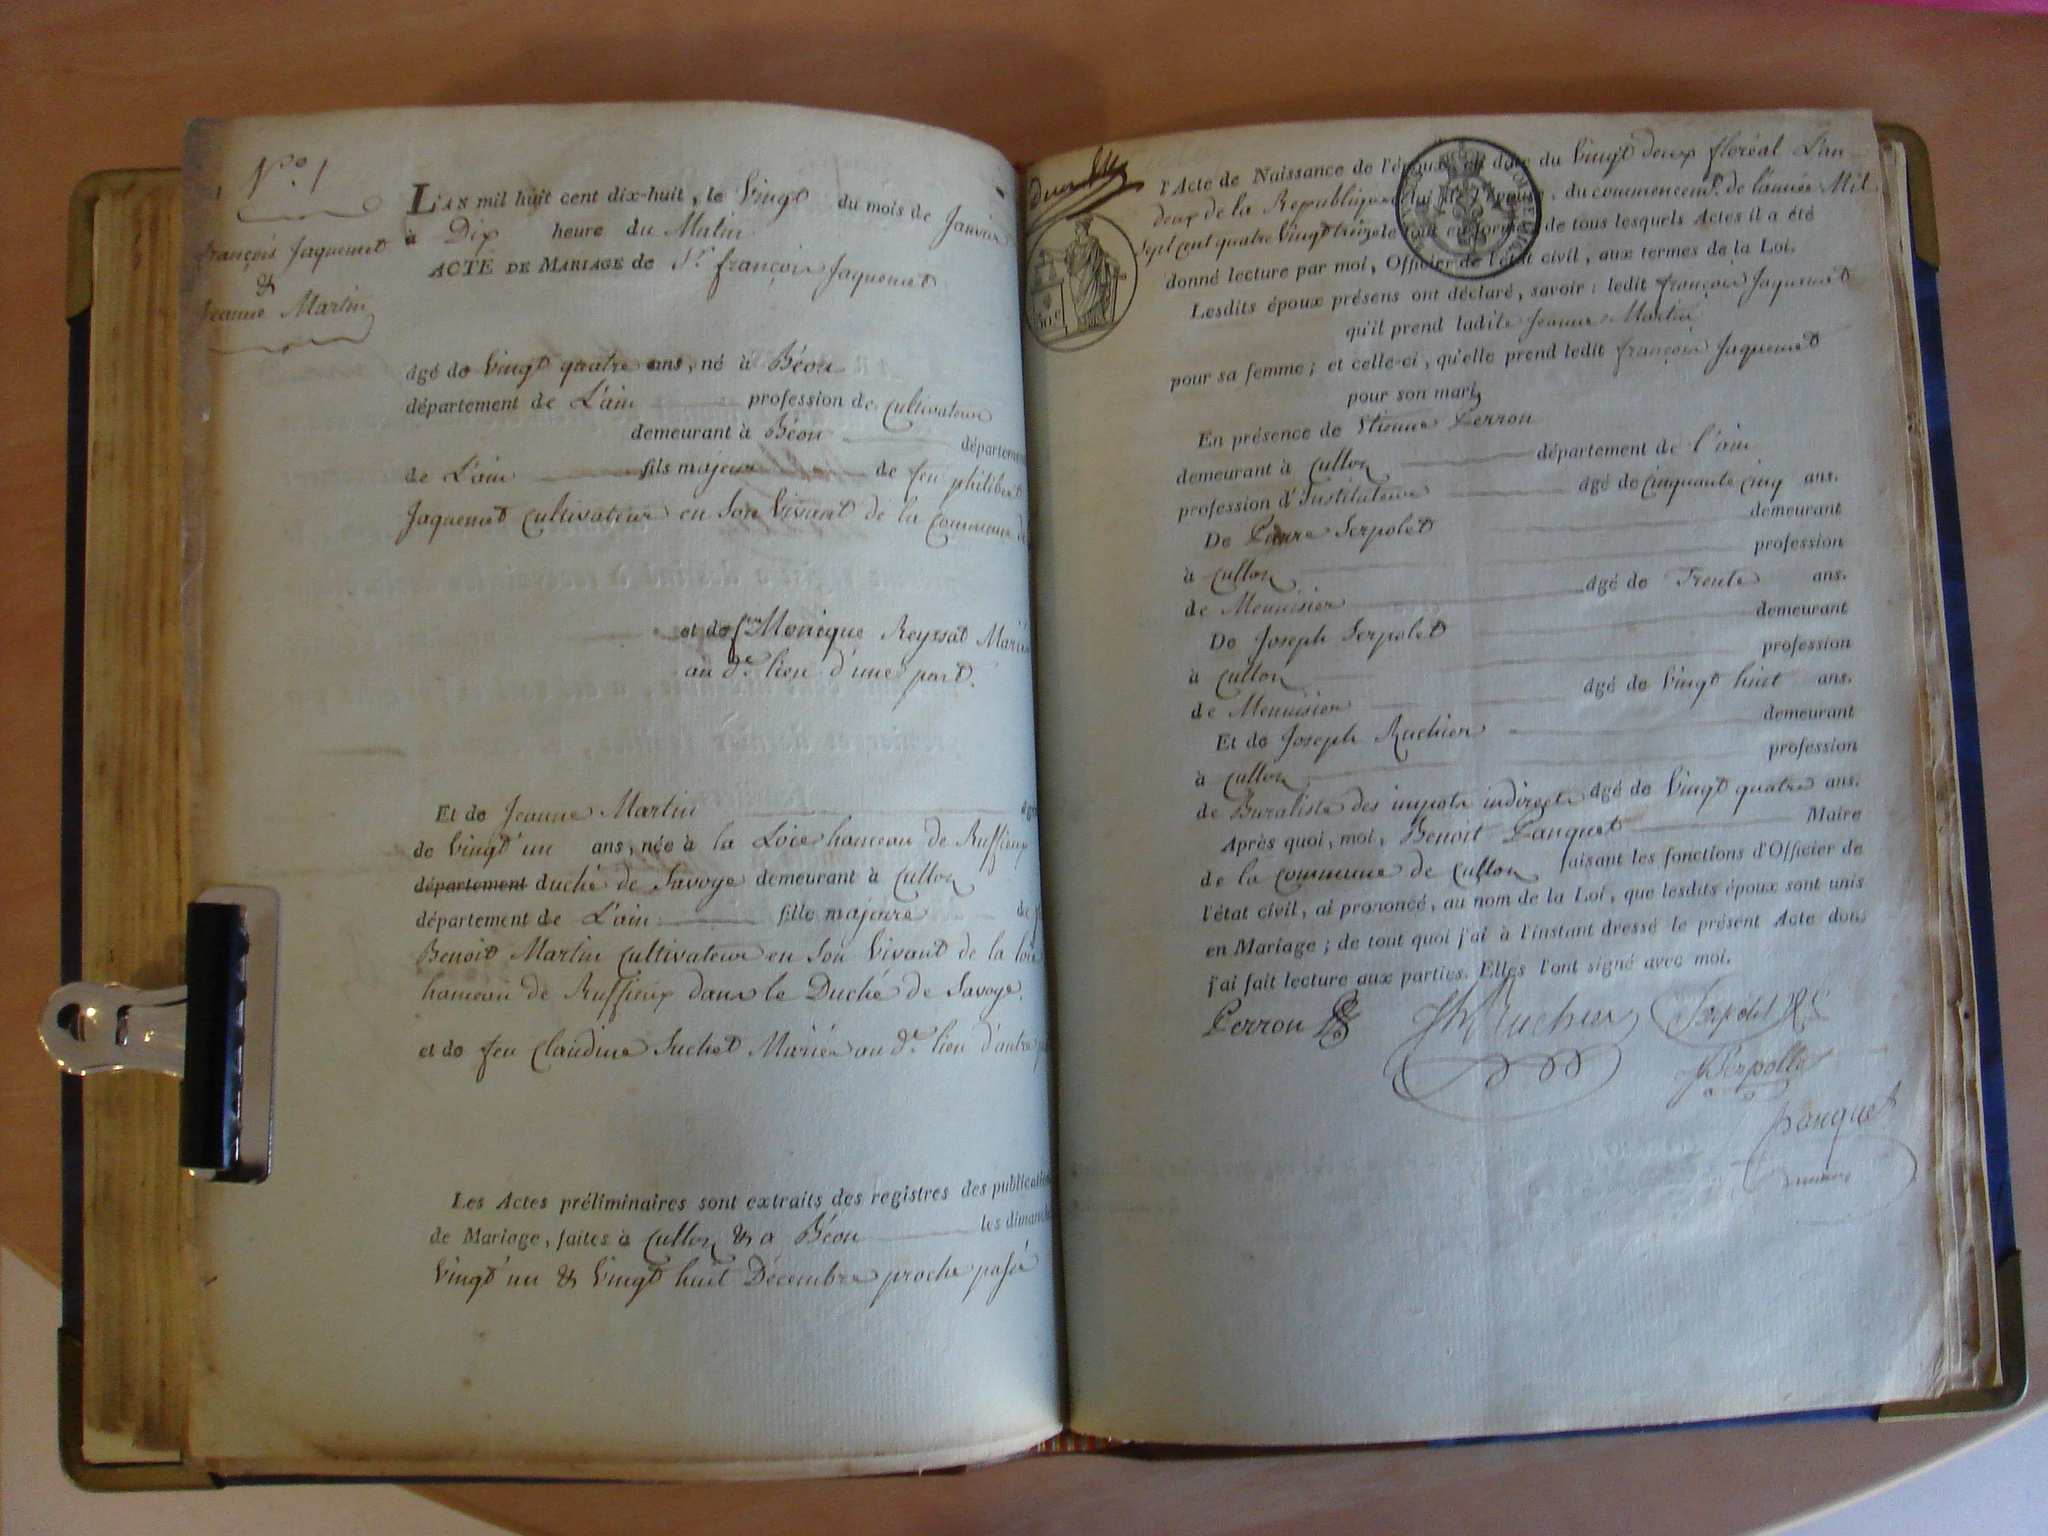 N.º 1
François Jaquemet
&
Jeanne Martin
L'AN mil huit cent dix-huit, le Vingt du mois de Janvier
à Dix heure du Matin
ACTE DE MARIAGE de Sr. françois Jaquemet
âgé de Vingt quatre ans, né à Béon
département de L'ain profession de Cultivateur
demeurant à Béon départemen
de L'ain fils majeur de feu philibert
Jaquemet Cultivateur en Son Vivant de la Commune de
et de feu Monique Reyssat Mariés
au dt. lieu d'une part.
Et de Jeanne Martin âgée
de Vingt'un ans, née à la Loie hameau de Ruffieux
département duché de Savoye demeurant à Culloz
département de L'ain fille majeure de f
Benoit Martin Cultivateur en Son Vivant de la loie
hameau de Ruffieux dans le Duché de Savoye.
et de feu Claudine Suchet Mariés au dt. lieu d'autre p
Les Actes préliminaires sont extraits des registres des publication
de Mariage, faites à Culloz & a Béon les dimanche
Vingt'un & Vingt huit Décembre proche passé
l'Acte de Naissance de l'épouse en date du Vingt deux floréal L'an
deux de la République lui dit Epoux, du commencemt. de l'année Mil
Sept cent quatre Vingt treize le tout en forme de tous lesquels Actes il a été
donné lecture par moi, Officier de l'état civil, aux termes de la Loi.
Lesdits époux présens ont déclaré, savoir : ledit françois Jaquemet
qu'il prend ladite Jeanne Martin
pour sa femme ; et celle-ci, qu'elle prend ledit françois Jaquemet
pour son mari,
En présence de Etienne Perron
demeurant à Culloz département de l'ain
profession d'Instituteur âgé de cinquante cinq ans.
De Pierre Serpolet demeurant
à Culloz profession
de Menuisier âgé de Trente ans.
De Joseph Serpolet demeurant
à Culloz profession
de Menuisier âgé de Vingt huit ans.
Et de Joseph Ruchier demeurant
à Culloz profession
de Buraliste des impots indirects âgé de Vingt quatre ans.
Après quoi, moi, Benoit Panquet Maire
de la commune de Culloz faisant les fonctions d'Officier de
l'état civil, ai prononcé, au nom de la Loi, que lesdits époux sont unis
en Mariage ; de tout quoi j'ai à l'instant dressé le présent Acte dont
j'ai fait lecture aux parties. Elles l'ont signé avec moi.
Perron Jh Ruchier Serpolet
J Serpollet
panquet
maire